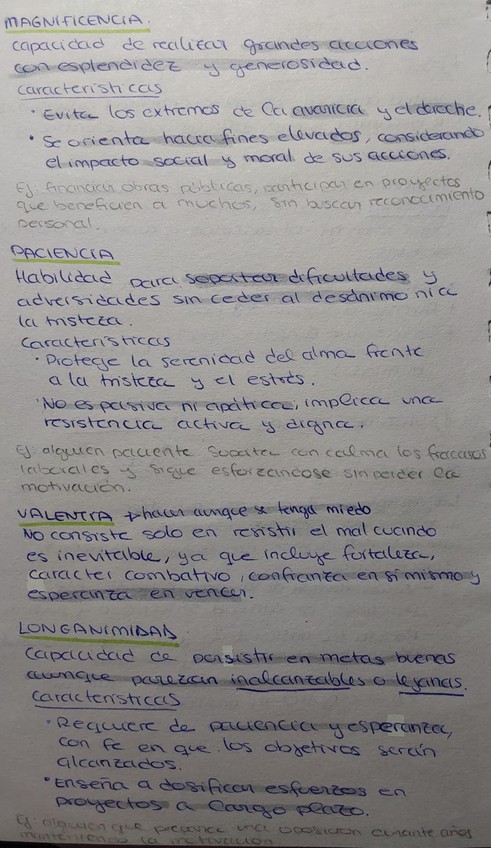 MAGNIFICENCIA.
capacidad de realizar grandes acciones
con esplendidez y generosidad.
características
· Evita los extremos de la avaricia y el derroche.
· Se orienta hacia fines elevados, considerando
el impacto social y moral de sus acciones.
Ej: financiar obras públicas, participar en proyectos
que beneficien a muchos, sin buscar reconocimiento
personal.
PACIENCIA
Habilidad para soportar dificultades y
adversidades sin ceder al desánimo ni a
la tristeza.
Características
· Protege la serenidad del alma frente
a la tristeza y el estrés.
· No es pasiva ni apática, implica una
resistencia activa y digna.
Ej: alguien paciente soporta con calma los fracasos
laborales y sigue esforzándose sin perder la
motivación.
VALENTIA → hacer aunque se tenga miedo
No consiste solo en resistir el mal cuando
es inevitable, ya que incluye fortaleza,
caracter combativo, confianza en sí mismo y
esperanza en vencer.
LONGANIMIDAD
Capacidad de persistir en metas buenas
aunque parezcan inalcanzables o lejanas.
Características
· Requiere de paciencia y esperanza,
con fe en que los objetivos serán
alcanzados.
· Enseña a dosificar esfuerzos en
proyectos a largo plazo.
Ej: alguien que prepara una oposición durante años
manteniendo la motivación